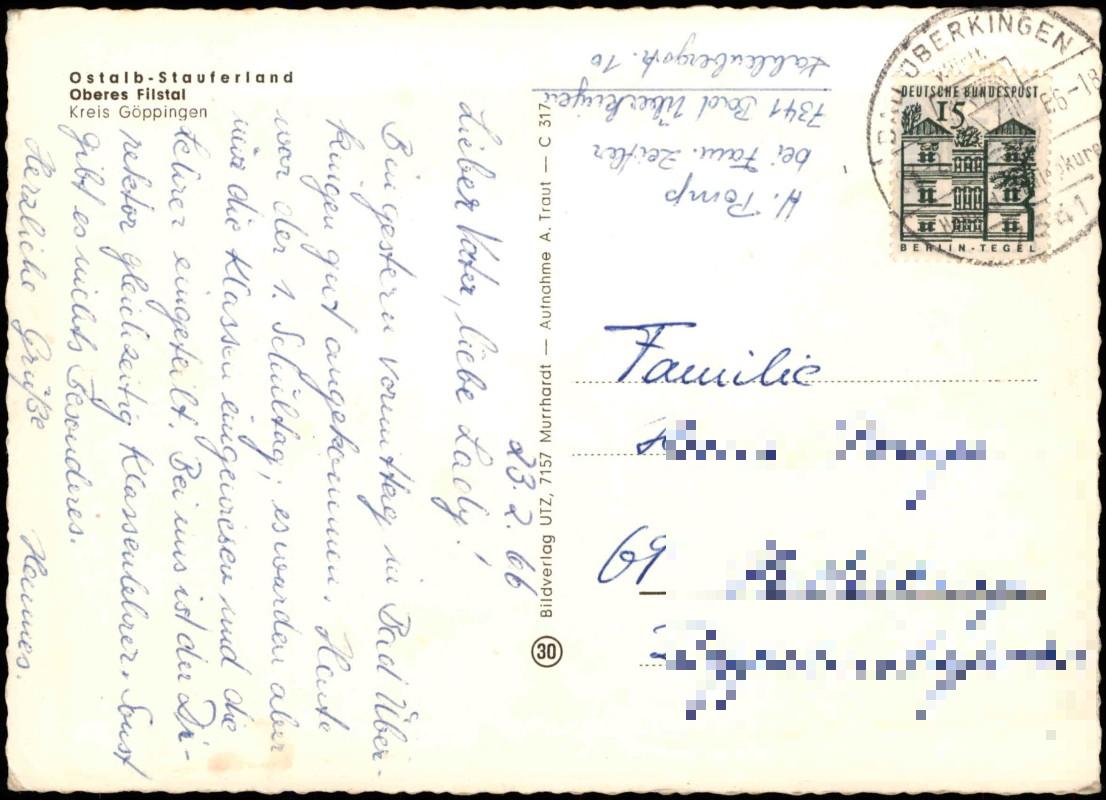 Ostalb-Stauferland
Oberes Filstal
Kreis Göppingen
23.2.66
Lieber Vater, liebe Lady!
Bin gestern vormittag in Bad Über-
kingen gut angekommen. Heute
war der 1. Schultag, es wurden aber
nur die Klassen eingewiesen und die
Lehrer eingeteilt. Bei uns ist der Di-
rektor gleichzeitig Klassenlehrer. Sonst
gibt es nichts Besonderes.
Herzliche Grüße
Hannes.
Bildverlag UTZ, 7157 Murrhardt — Aufnahme A. Traut — C 317
30
H. Pomp
bei Fam. Zeifler
7341 Bad Überkingen
str. 10
BAD ÜBERKINGEN
66-18
7341
DEUTSCHE BUNDESPOST
15
BERLIN-TEGEL
Familie
69